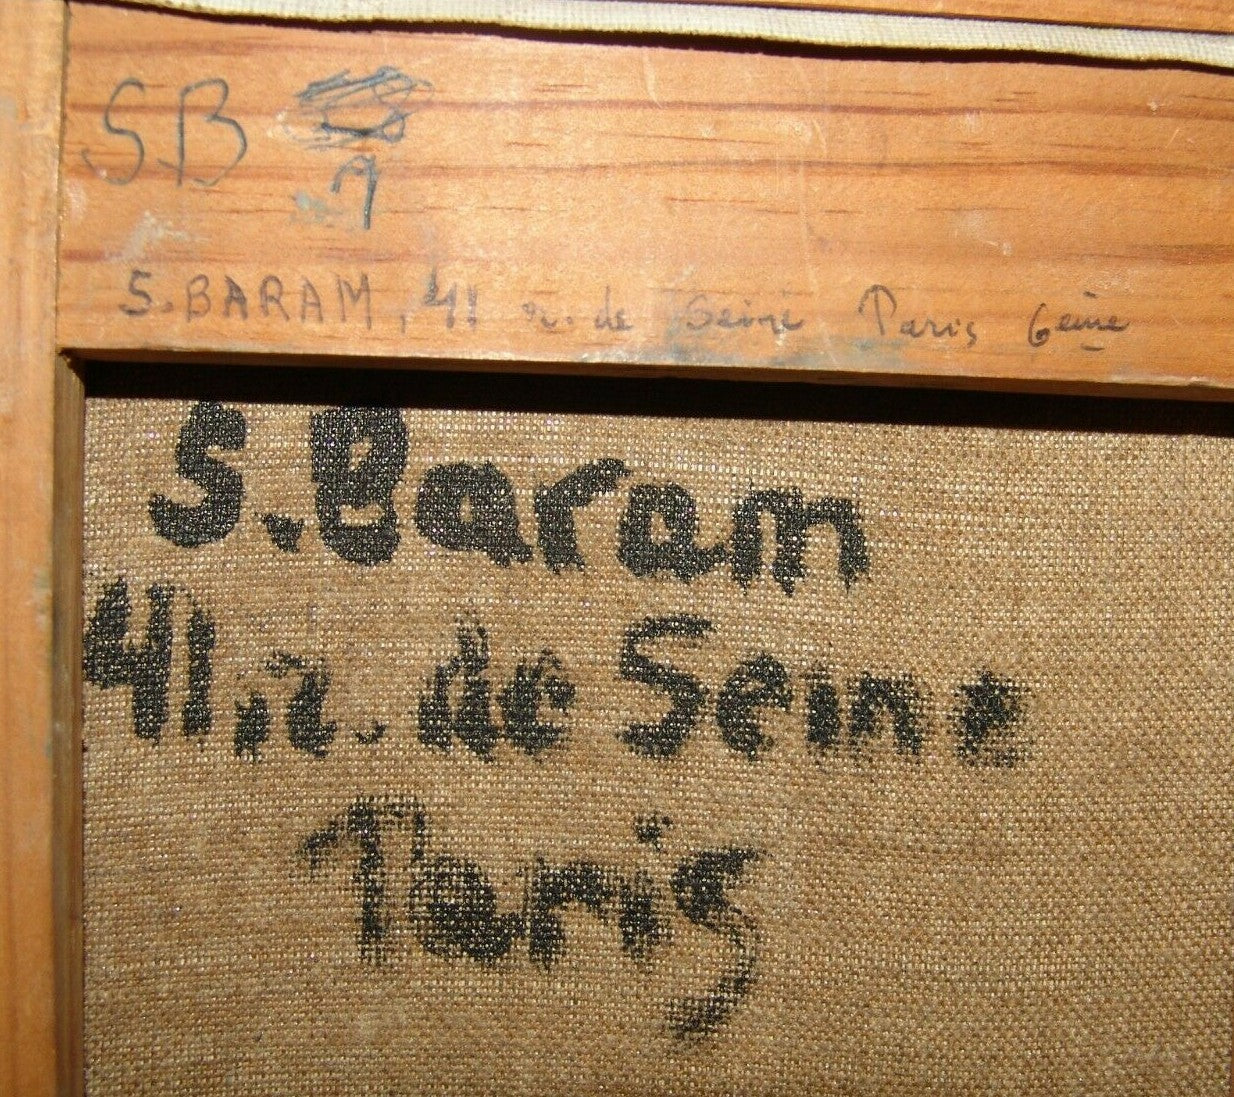 SB
9
S. BARAM, 41 r. de Seine Paris 6eme
S. Baram
41, r. de Seine
Paris